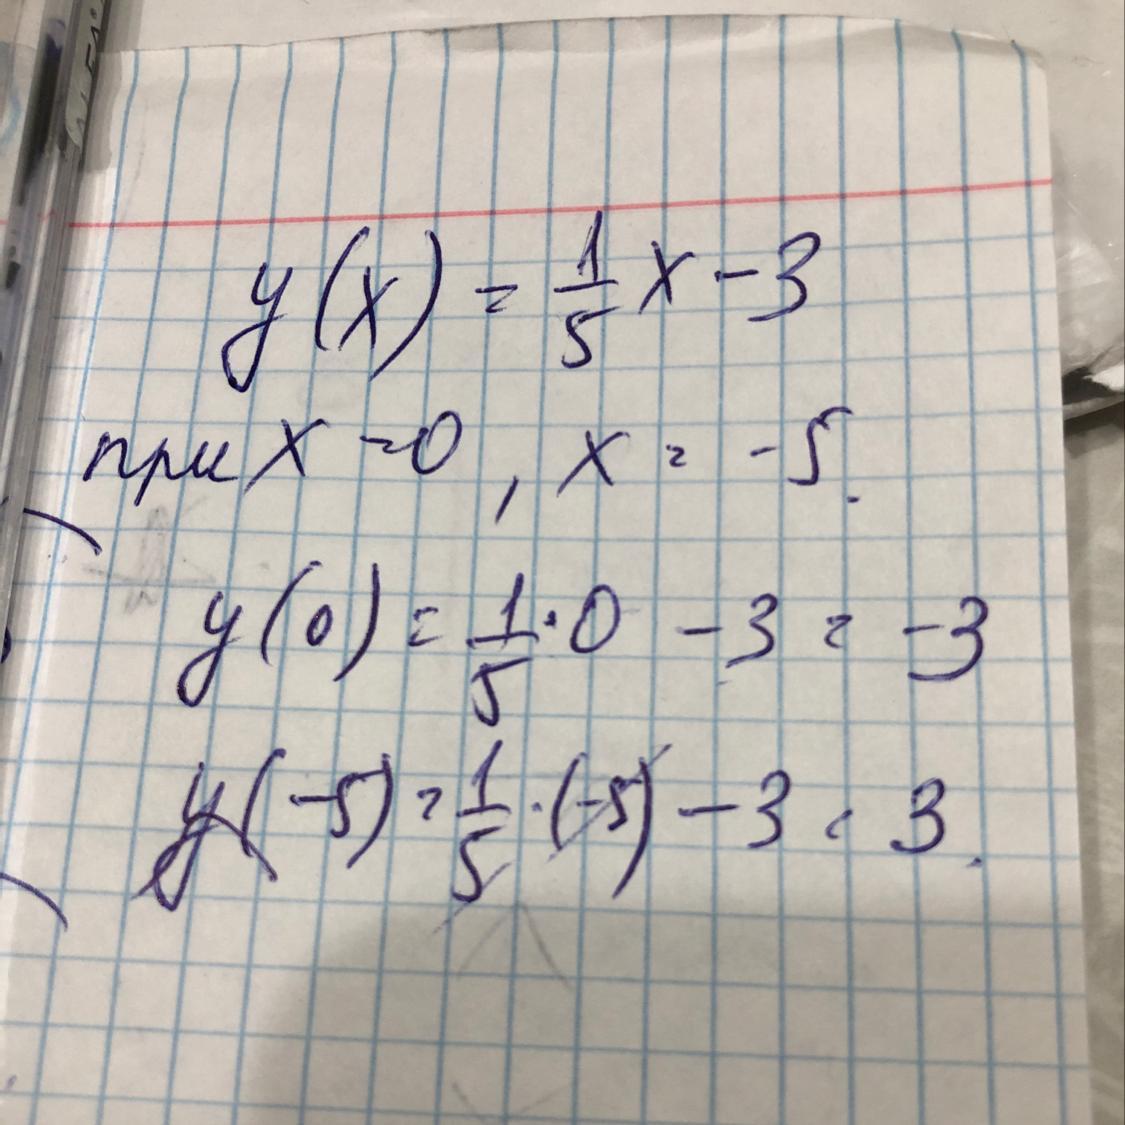 y(x) = 1/5 x - 3
при x = 0, x = -5.
y(0) = 1/5 · 0 - 3 = -3
y(-5) = 1/5 · (-5) - 3 = 3.